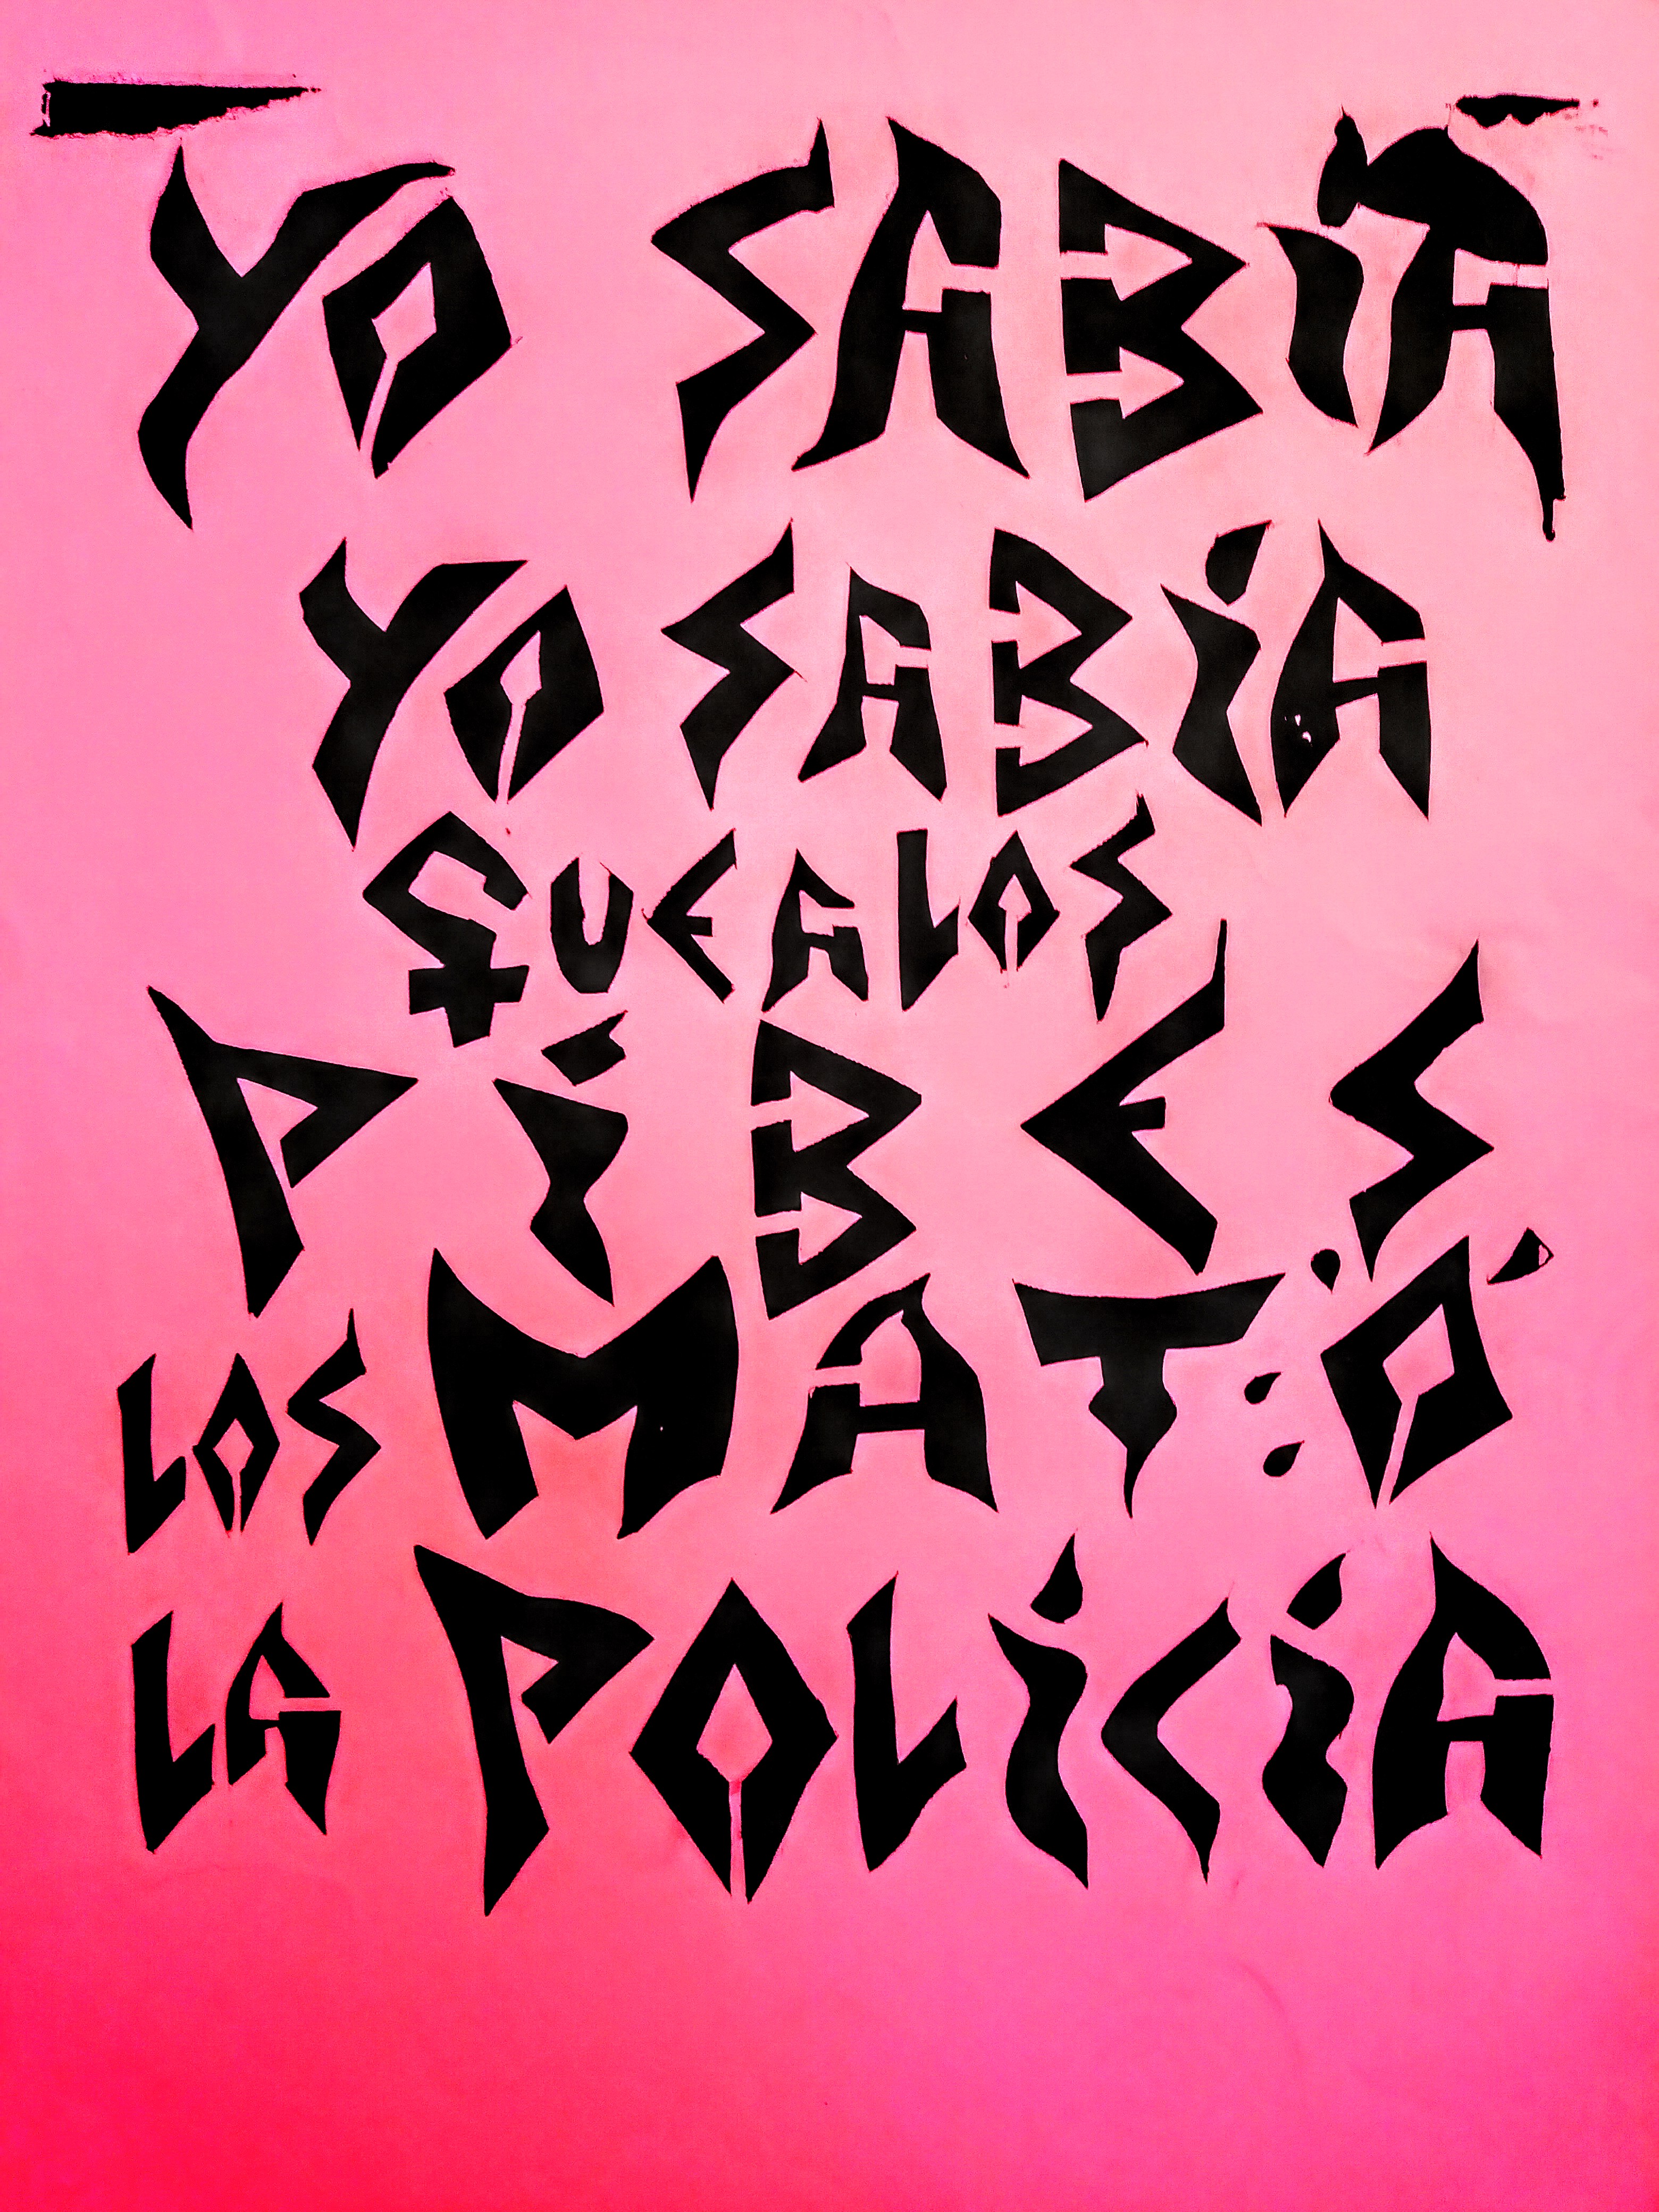 YO SABíA
YO SABíA
QUE A LOS
PíBES
LOS MATÓ
LA POLiCíA